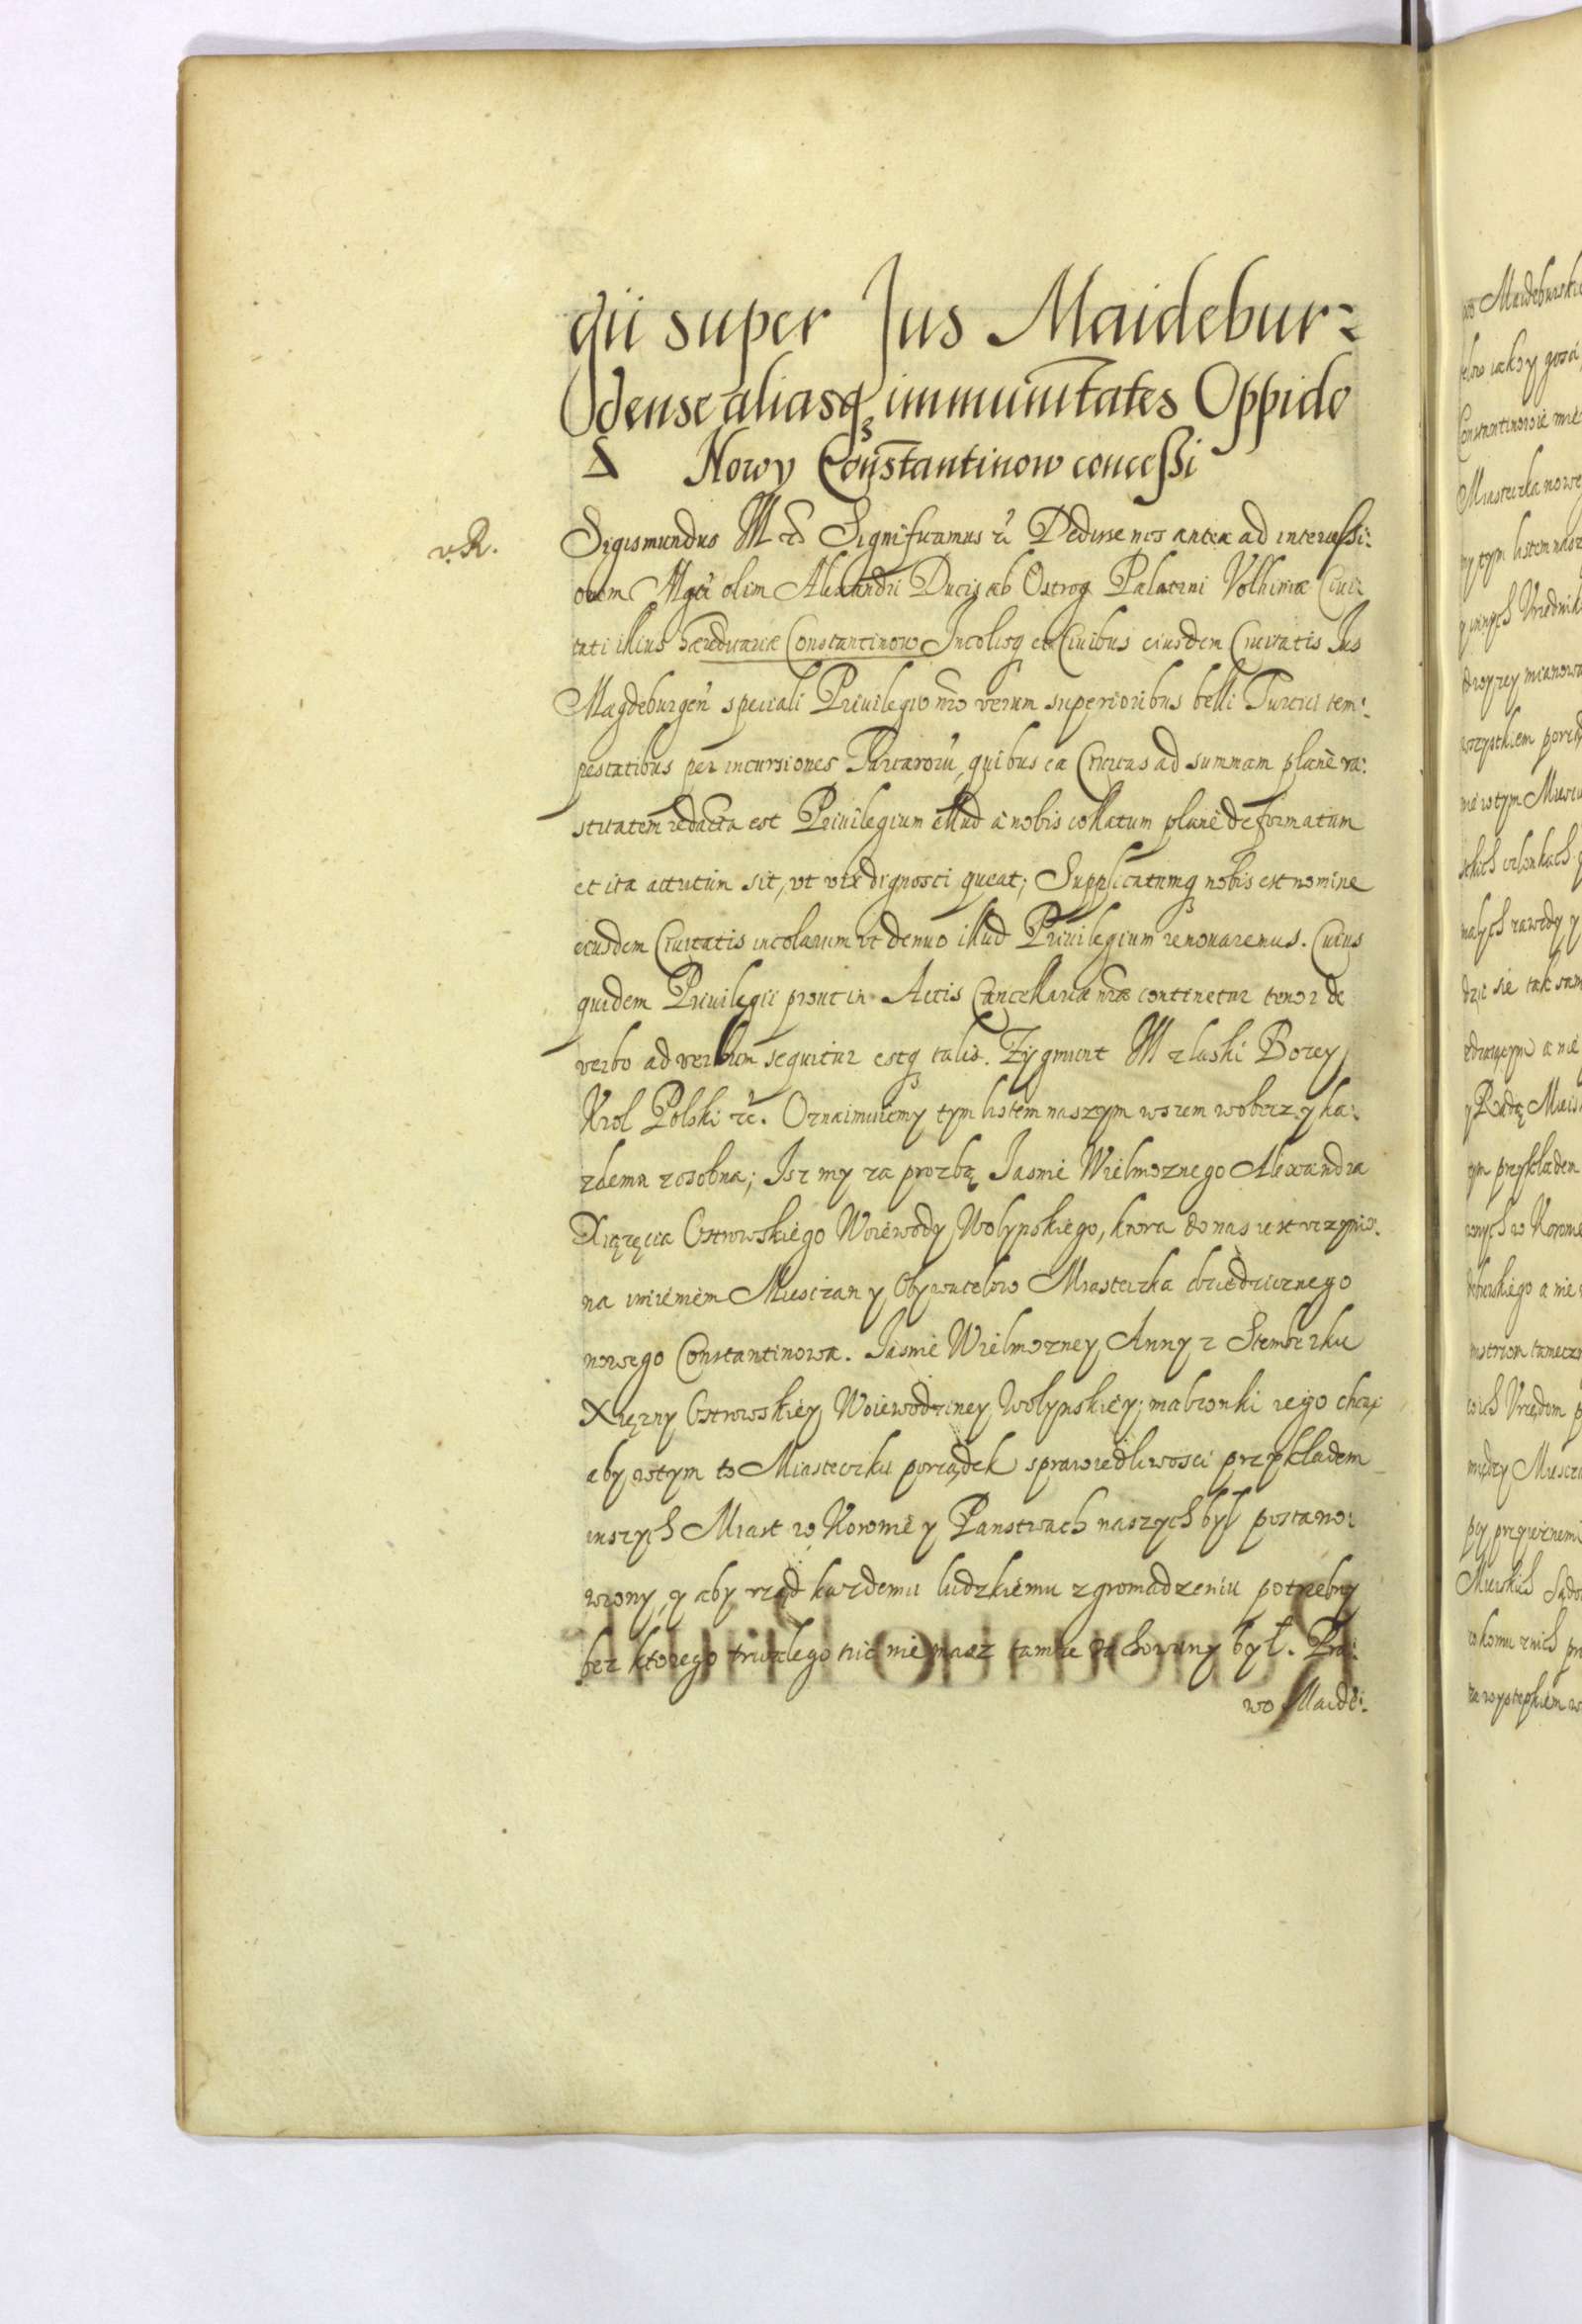 gii super Jus Maidebur=
dense aliasq₃ immunitates Oppido
Nowy Constantinow concessi
v. R.
Sigismundus III etc Significamus etc Dedisse nos antea ad intercessi:
onem Mgci olim Alexandri Ducis ab Ostrog Palatini Volhiniæ Civi:
tati illius hæreditariæ Constantinow Incolisq et Civibus eiusdem Civitatis Jus
Magdeburgen speciali Privilegio nro verum superioribus belli Turcici tem:
pestatibus per incursiones Tartaroru, quibus ea Civitas ad summam planè va:
stitatem redacta est Privilegium illud à nobis collatum planè deformatum
et ita attritum sit, ut vix dignosci queat; Supplicatumq₃ nobis est nomine
eiusdem Civitatis incolarum ut denuo illud Privilegium renovaremus. Cuius
quidem Privilegii prout in Actis Cancellariæ nræ continetur tenor de
verbo ad verbum sequitur estq₃ talis. Zygmunt III z laski Bozey
Krol Polski etc. Oznaimuiemy tym listem naszym wszem wobecz y ka:
zdemu zosobna; Isz my za prozbą Iasnie Wielmoznego Alexandra
Xiązęcia Ostrowskiego Woiewody Wolynskiego, ktora do nas iest vczynio:
na imieniem Miesczan y Obywatelow Miasteczka dziedzicznego
nowego Constantinowa. Iasnie Wielmozney Anny z Stemberku
Xięzny Ostrowskiey Woiewodziney Wolynskiey; malzonki iego chcąc
aby wtym to Miasteczku porządek sprawiedliwosci przykladem
inszych Miast w Koronie y Panstwach naszych był postano:
wiony, y aby rząd kazdemu ludzkiemu zgromadzeniu potrzebny
bez ktorego trwalego nic nie masz tamze zachowany był. Pra:
wo Maide: